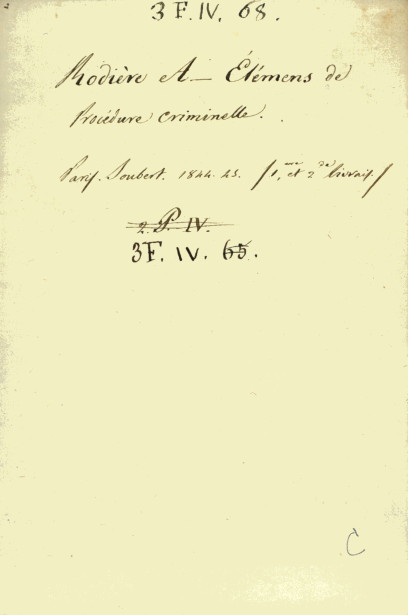 3 F. IV. 68.
Rodière A — Élémens de
Procédure criminelle.
Paris. Joubert. 1844. 45. /1.ère et 2de livrais/
2. P. IV.
3 F. IV. 65.
C